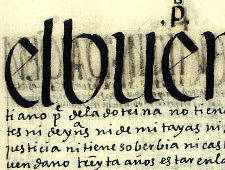 p.
el buen
tiano p̃ dela dotrina no tien
tes ni deyn̄s ni de mitayas ni
justicia ni tiene soberbia ni cas
uen dano treyta años estar en la